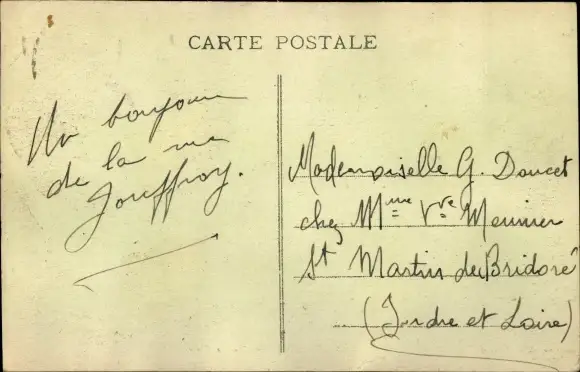 CARTE POSTALE
Un bonjour
de la rue
Jouffroy.
Mademoiselle G. Doucet
chez Mme Vve Meunier
St Martin de Bridoré
(Indre et Loire)